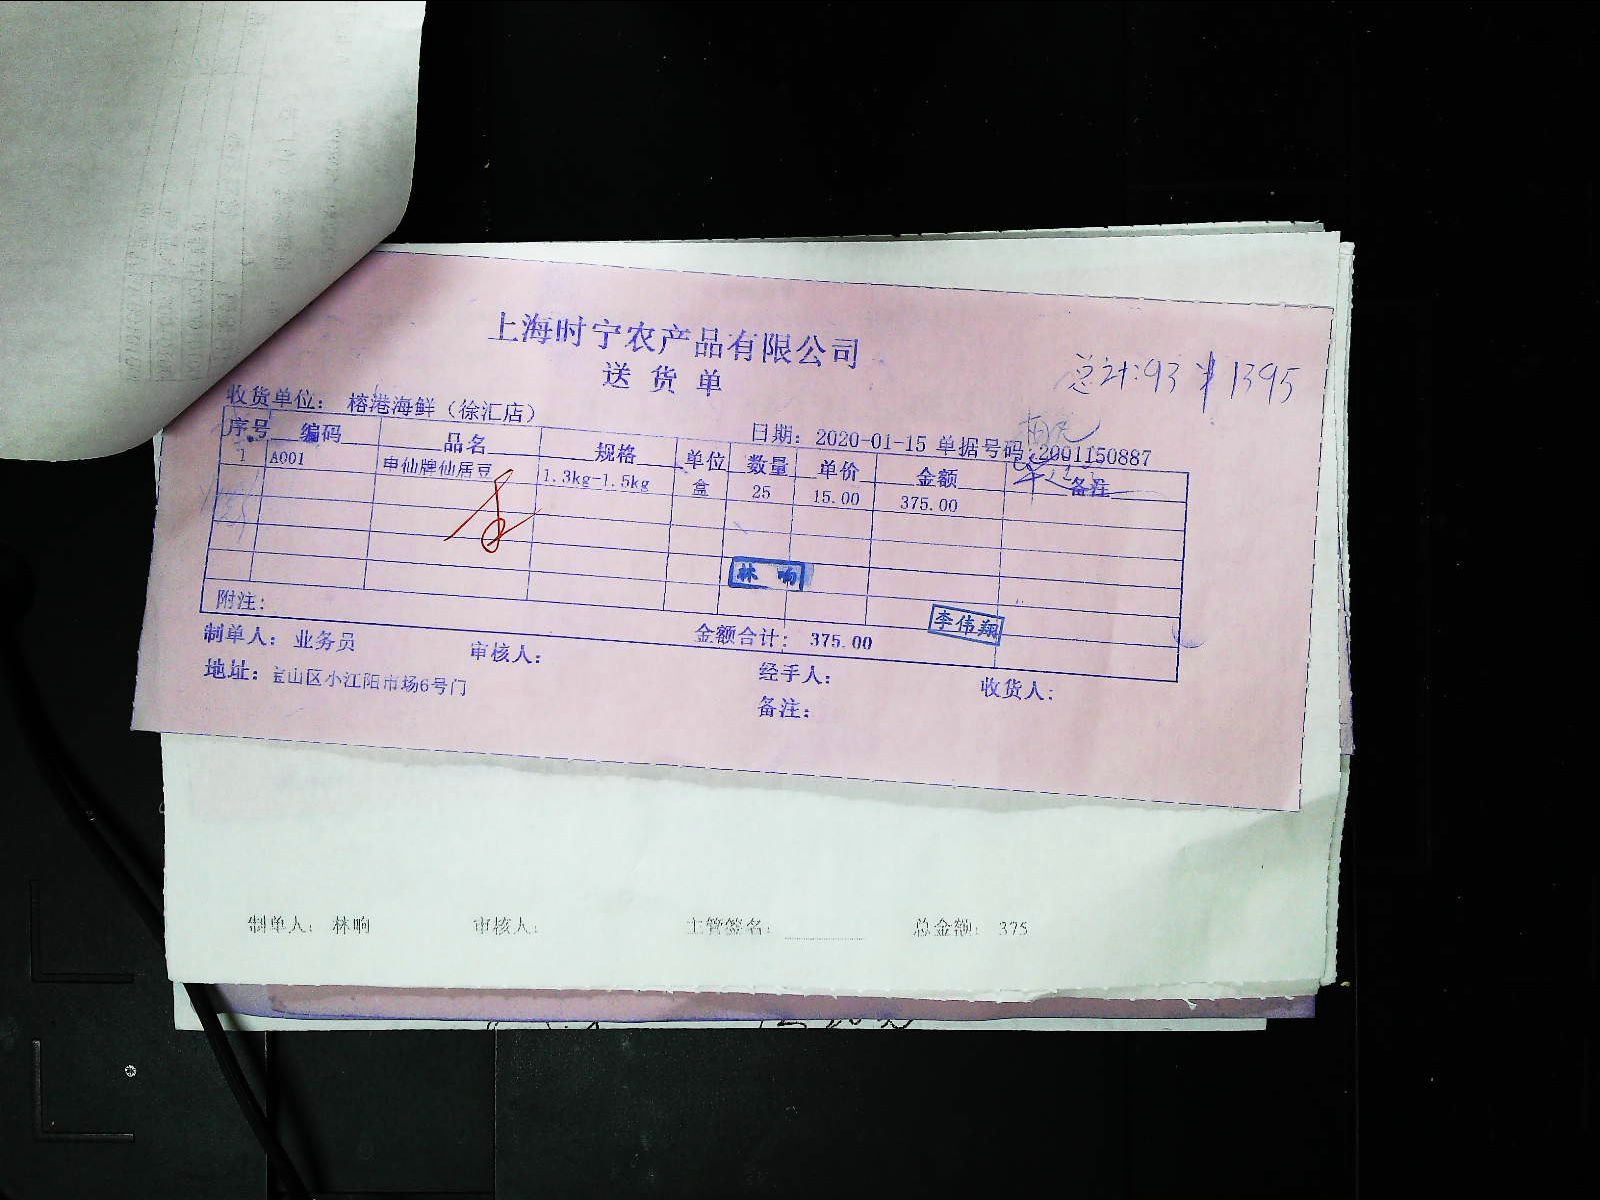 上海时宁农产品有限公司
送 货 单
总计:93 ¥1395
收货单位： 榕港海鲜（徐汇店）
日期： 2020-01-15 单据号码:2001150887
序号 编码 品名 规格 单位 数量 单价 金额 备注
1 A001 申仙牌仙居豆 1.3kg-1.5kg 盒 25 15.00 375.00
林 响
李伟翔
附注：
金额合计： 375.00
制单人： 业务员 审核人： 经手人： 收货人：
地址：宝山区小江阳市场6号门 备注：
制单人： 林响 审核人： 主管签名： 总金额： 375